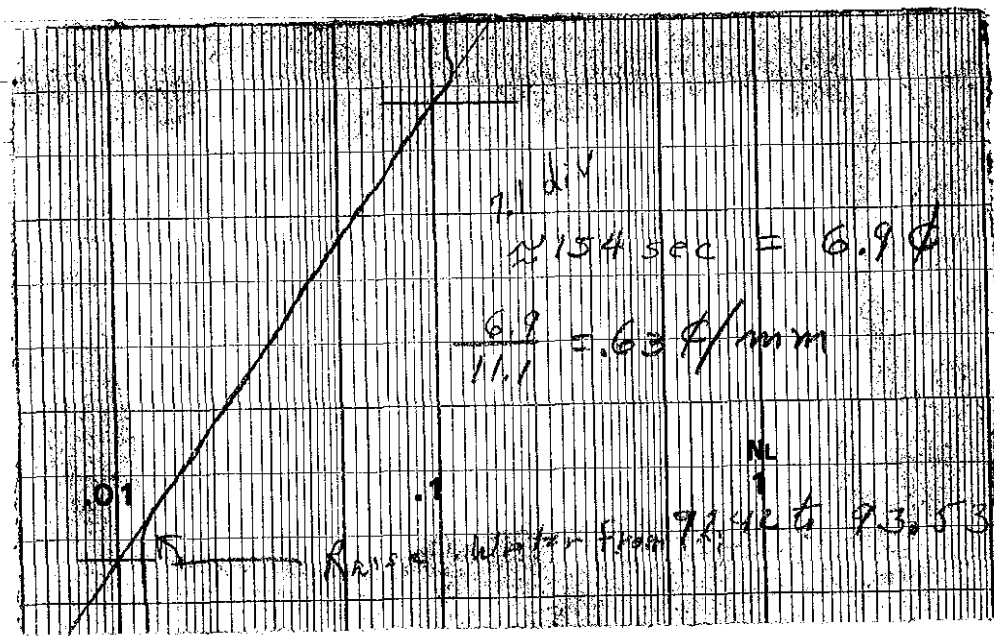 7.1 div
≈ 154 sec = 6.9 ¢
6.9
11.1
= .63 ¢/mm
NL
.01 .1 1
Raised Water from to 93.53